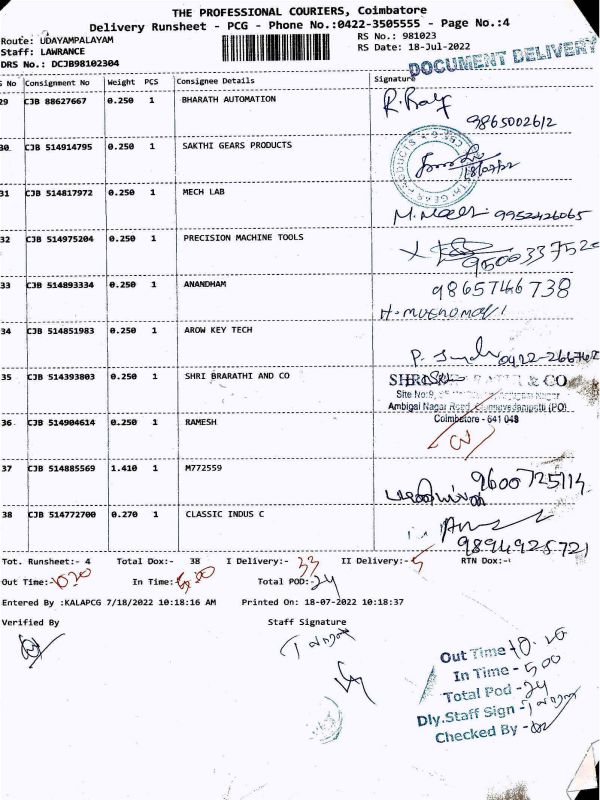 THE PROFESSIONAL COURIERS, Coimbatore
Delivery Runsheet - PCG - Phone No.:0422-3505555 - Page No.:4
Route: UDAYAMPALAYAM RS No.: 981023
Staff: LAWRANCE RS Date: 18-Jul-2022
DRS No.: DCJB98102304
DOCUMENT DELIVERY
S No Consignment No Weight PCS Consignee Details Signature
29 CJB 88627667 0.250 1 BHARATH AUTOMATION
9865002612
30 CJB 514914795 0.250 1 SAKTHI GEARS PRODUCTS
18/07/22
31 CJB 514817972 0.250 1 MECH LAB
9952426065
32 CJB 514975204 0.250 1 PRECISION MACHINE TOOLS
9500337520
33 CJB 514893334 0.250 1 ANANDHAM
9865746738
34 CJB 514851983 0.250 1 AROW KEY TECH
35 CJB 514393803 0.250 1 SHRI BRARATHI AND CO
& CO
Site No:9,
Ambigai Nagar Road, (PO)
Coimbatore - 641 048
36 CJB 514904614 0.250 1 RAMESH
37 CJB 514885569 1.410 1 M772559
9600725114
38 CJB 514772700 0.270 1 CLASSIC INDUS C
9894925721
Tot. Runsheet:- 4 Total Dox:- 38 I Delivery:- 33 II Delivery:- 5 RTN Dox:-
Out Time:- 10.20 In Time:- Total POD:- 24
Entered By :KALAPCG 7/18/2022 10:18:16 AM Printed On: 18-07-2022 10:18:37
Verified By Staff Signature
Out Time - 10.20
In Time - 5.00
Total Pod - 24
Dly.Staff Sign -
Checked By -